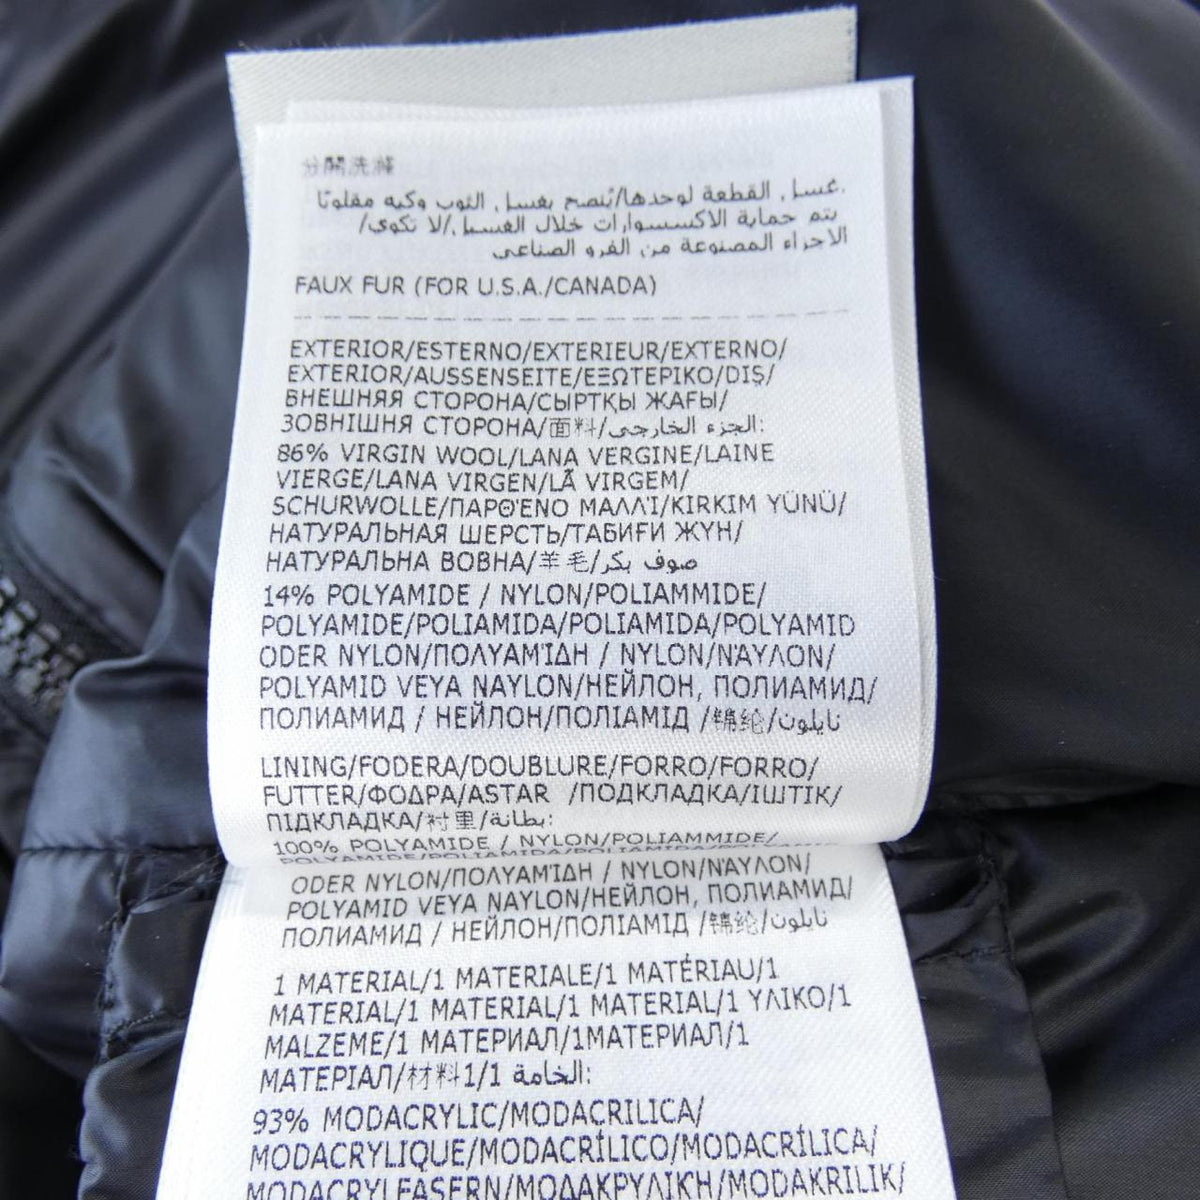 分開洗滌
غسل القطعة لوحدها/يُنصح بغسل الثوب وكيه مقلوبًا.
يتم حماية الاكسسوارات خلال الغسيل./لا تكوي/
الاجزاء المصنوعة من الفرو الصناعي
FAUX FUR (FOR U.S.A./CANADA)
EXTERIOR/ESTERNO/EXTERIEUR/EXTERNO/
EXTERIOR/AUSSENSEITE/ΕΞΩΤΕΡΙΚΟ/DIŞ/
ВНЕШНЯЯ СТОРОНА/СЫРТҚЫ ЖАҒЫ/
ЗОВНІШНЯ СТОРОНА/面料/الجزء الخارجي:
86% VIRGIN WOOL/LANA VERGINE/LAINE
VIERGE/LANA VIRGEN/LÃ VIRGEM/
SCHURWOLLE/ΠΑΡΘΈΝΟ ΜΑΛΛΊ/KIRKIM YÜNÜ/
НАТУРАЛЬНАЯ ШЕРСТЬ/ТАБИҒИ ЖҮН/
НАТУРАЛЬНА ВОВНА/羊毛/صوف بكر
14% POLYAMIDE / NYLON/POLIAMMIDE/
POLYAMIDE/POLIAMIDA/POLIAMIDA/POLYAMID
ODER NYLON/ΠΟΛΥΑΜΊΔΗ / NYLON/ΝΆΥΛΟΝ/
POLYAMID VEYA NAYLON/НЕЙЛОН, ПОЛИАМИД/
ПОЛИАМИД / НЕЙЛОН/ПОЛІАМІД /锦纶/نايلون
LINING/FODERA/DOUBLURE/FORRO/FORRO/
FUTTER/ΦΟΔΡΑ/ASTAR /ПОДКЛАДКА/ІШТІК/
ПІДКЛАДКА/衬里/بطانة:
100% POLYAMIDE / NYLON/POLIAMMIDE/
POLYAMIDE/POLIAMIDA/POLIAMIDA/POLYAMID
ODER NYLON/ΠΟΛΥΑΜΊΔΗ / NYLON/ΝΆΥΛΟΝ/
POLYAMID VEYA NAYLON/НЕЙЛОН, ПОЛИАМИД/
ПОЛИАМИД / НЕЙЛОН/ПОЛІАМІД /锦纶/نايلون
1 MATERIAL/1 MATERIALE/1 MATÉRIAU/1
MATERIAL/1 MATERIAL/1 MATERIAL/1 ΥΛΙΚΟ/1
MALZEME/1 МАТЕРИАЛ/1МАТЕРИАЛ/1
МАТЕРІАЛ/材料1/1 الخامة:
93% MODACRYLIC/MODACRILICA/
MODACRYLIQUE/MODACRÍLICO/MODACRÍLICA/
MODACRYLFASERN/ΜΟΔΑΚΡΥΛΙΚΗ/MODAKRILIK/